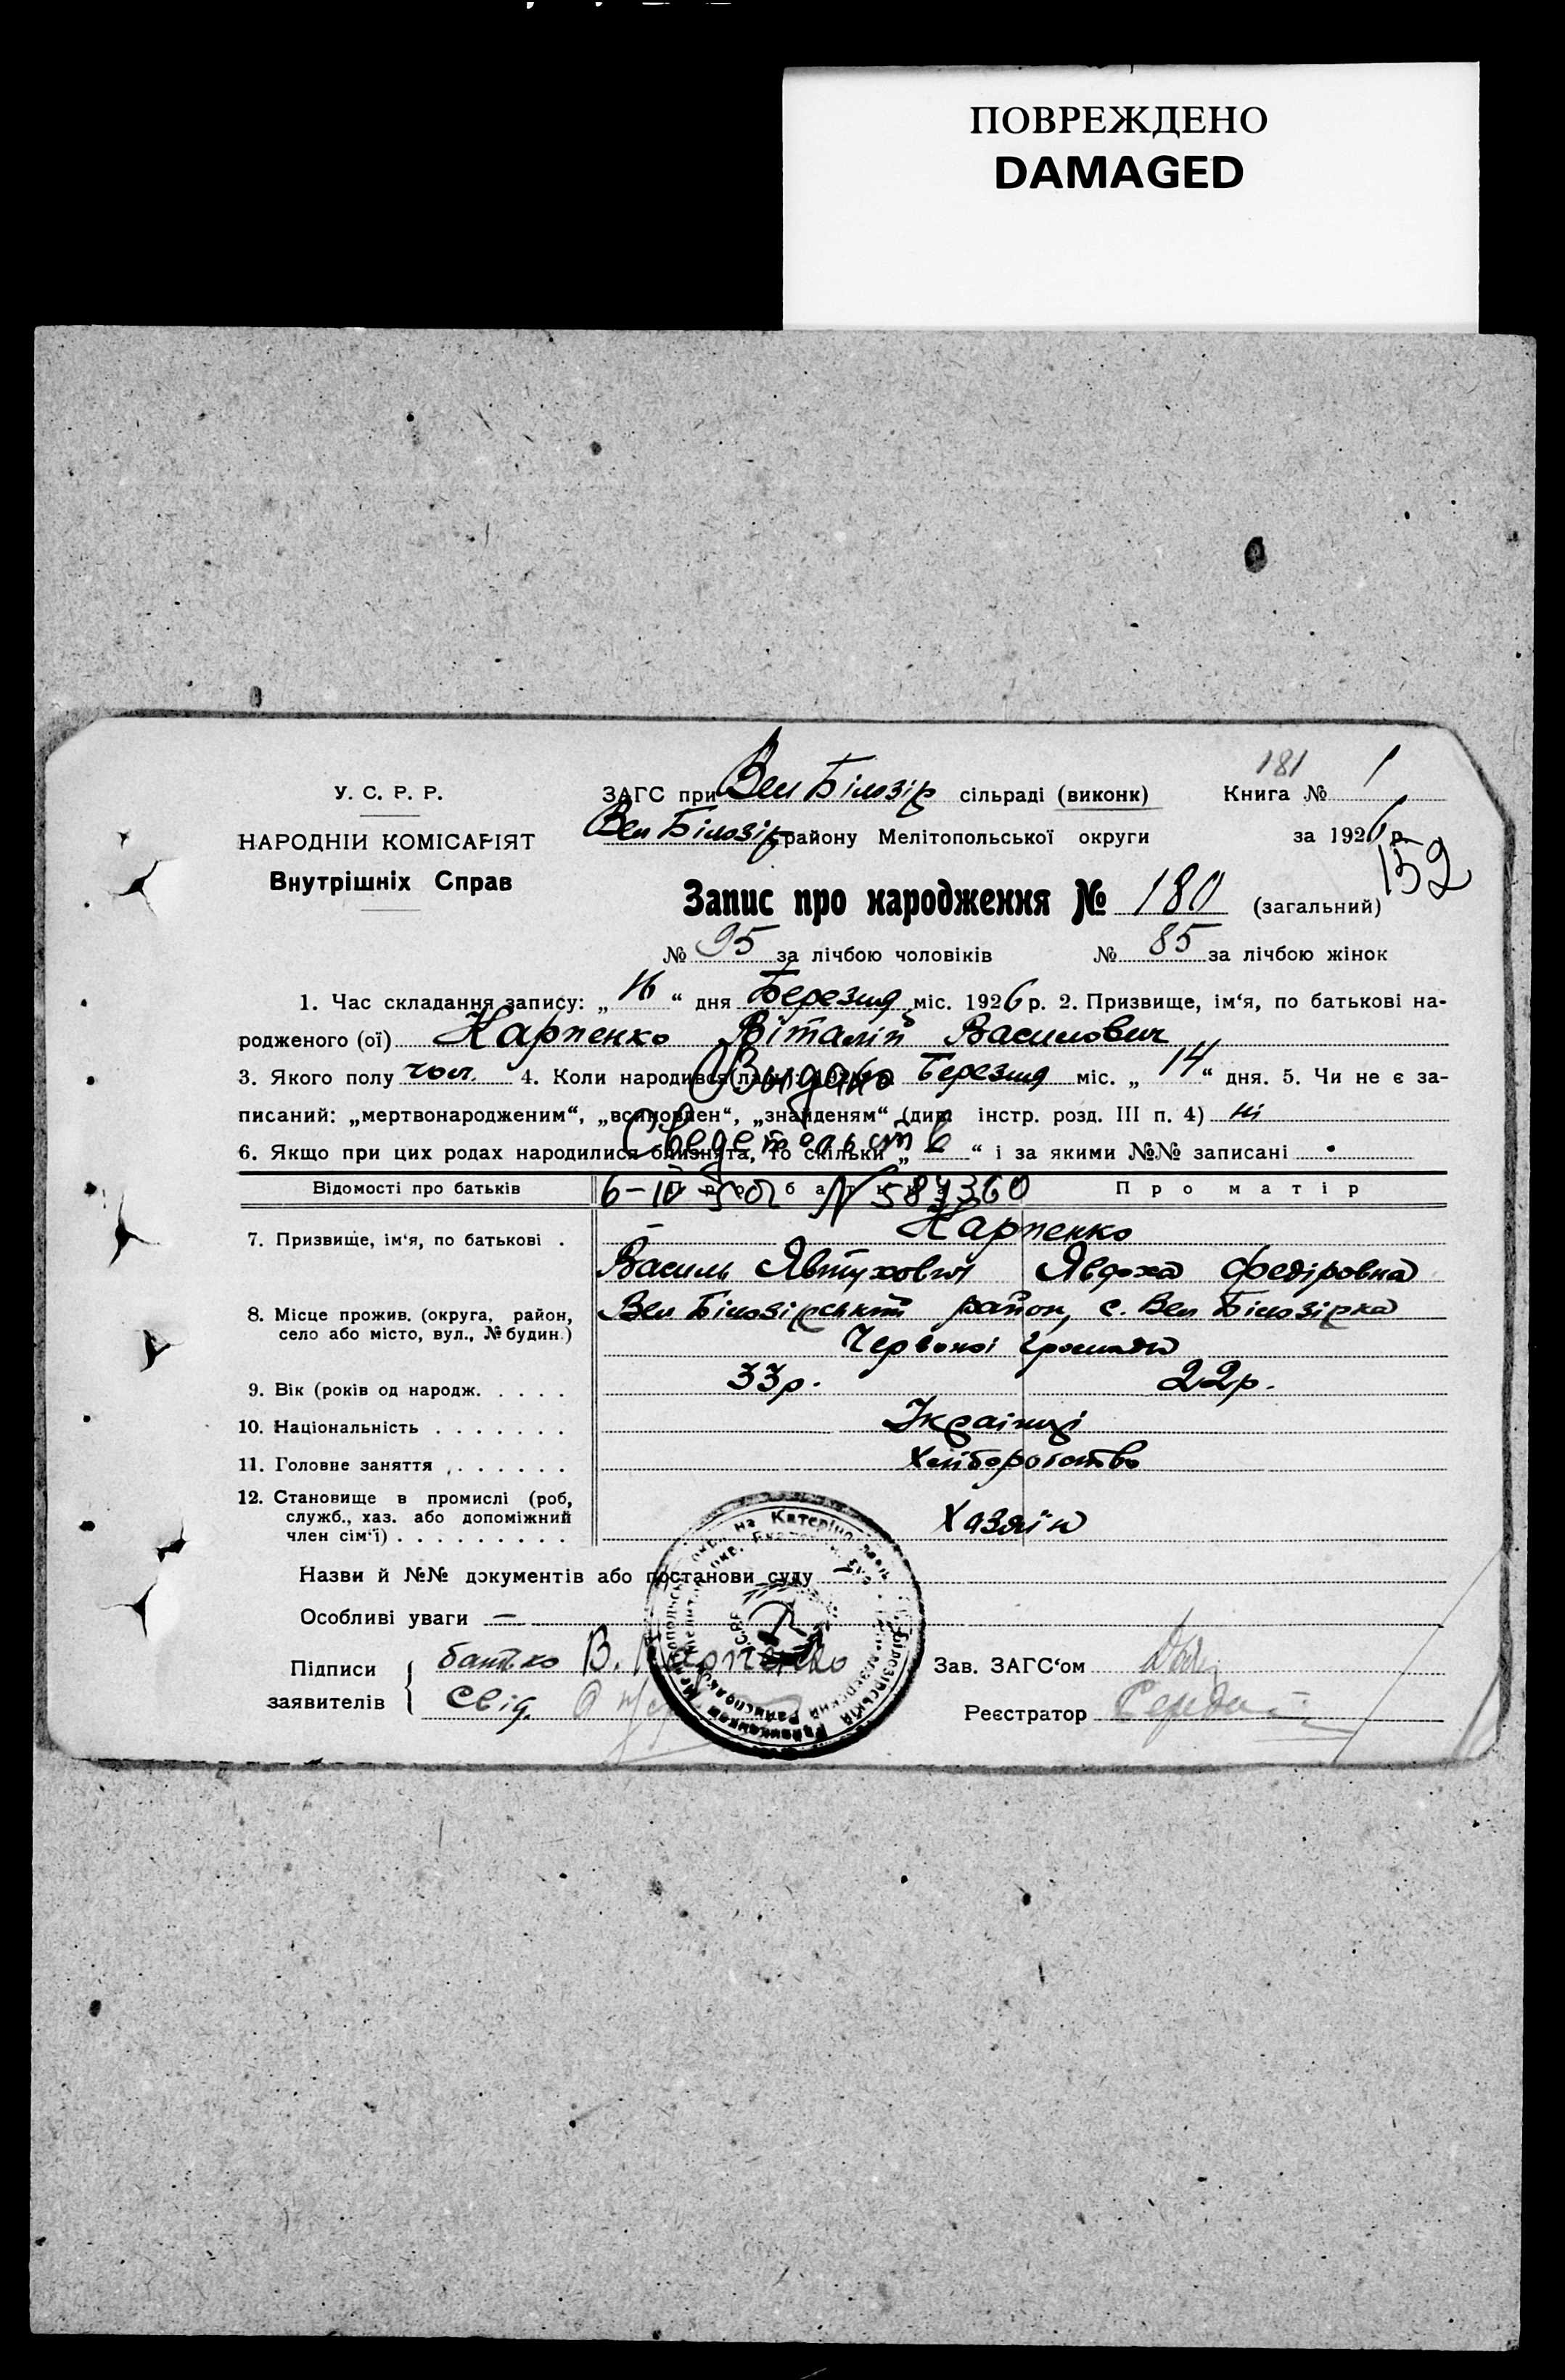 ПОВРЕЖДЕНО
DAMAGED
181
У. С. Р. Р.
ЗАГС при Вел Білозір сільраді (виконк)
Книга № 1
НАРОДНІЙ КОМІСАРІЯТ
Внутрішніх Справ
Вел Білозір району Мелітопольської округи
за 1926 р.
152
Запис про народження № 180 (загальний)
№ 95 за лічбою чоловіків № 85 за лічбою жінок
1. Час складання запису: „16“ дня Березня міс. 1926 р. 2. Призвище, ім‘я, по батькові на-
родженого (ої) Карпенко Віталій Василович
3. Якого полу чол. 4. Коли народився Березня міс. „14“ дня. 5. Чи не є за-
Выдано
писаний: „мертвонародженим“, „всиновлен“, „знайденям“ (див. інстр. розд. III п. 4) ні
Сведетельств
6. Якщо при цих родах народилися близнята, то скільки „ “ і за якими №№ записані
Відомості про батьків
Про матір
7. Призвище, ім‘я, по батькові .
— Карпенко
Василь Явтухович Явдоха Федіровна
8. Місце прожив. (округа, район,
село або місто, вул., № будин.)
Вел Білозірський район, с. Вел Білозірка
Червоної громади
9. Вік (років од народж. . . . .
33 р. 22 р.
10. Національність . . . . . . .
Українці
11. Головне заняття . . . . . . .
Хліборобство
12. Становище в промислі (роб,
служб., хаз. або допоміжний
член сім‘ї) . . . . . . . . .
Хазяїн
Назви й №№ документів або постанови суду
Особливі уваги —
Підписи
заявителів
батько В. Карпенко
Свід.
Зав. ЗАГС‘ом
Реєстратор